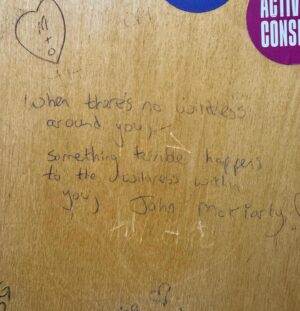 M
+
O
ACTIV
CONSE
when there's no wildness
around you,
something terrible happens
to the wildness within
you, John Moriarty